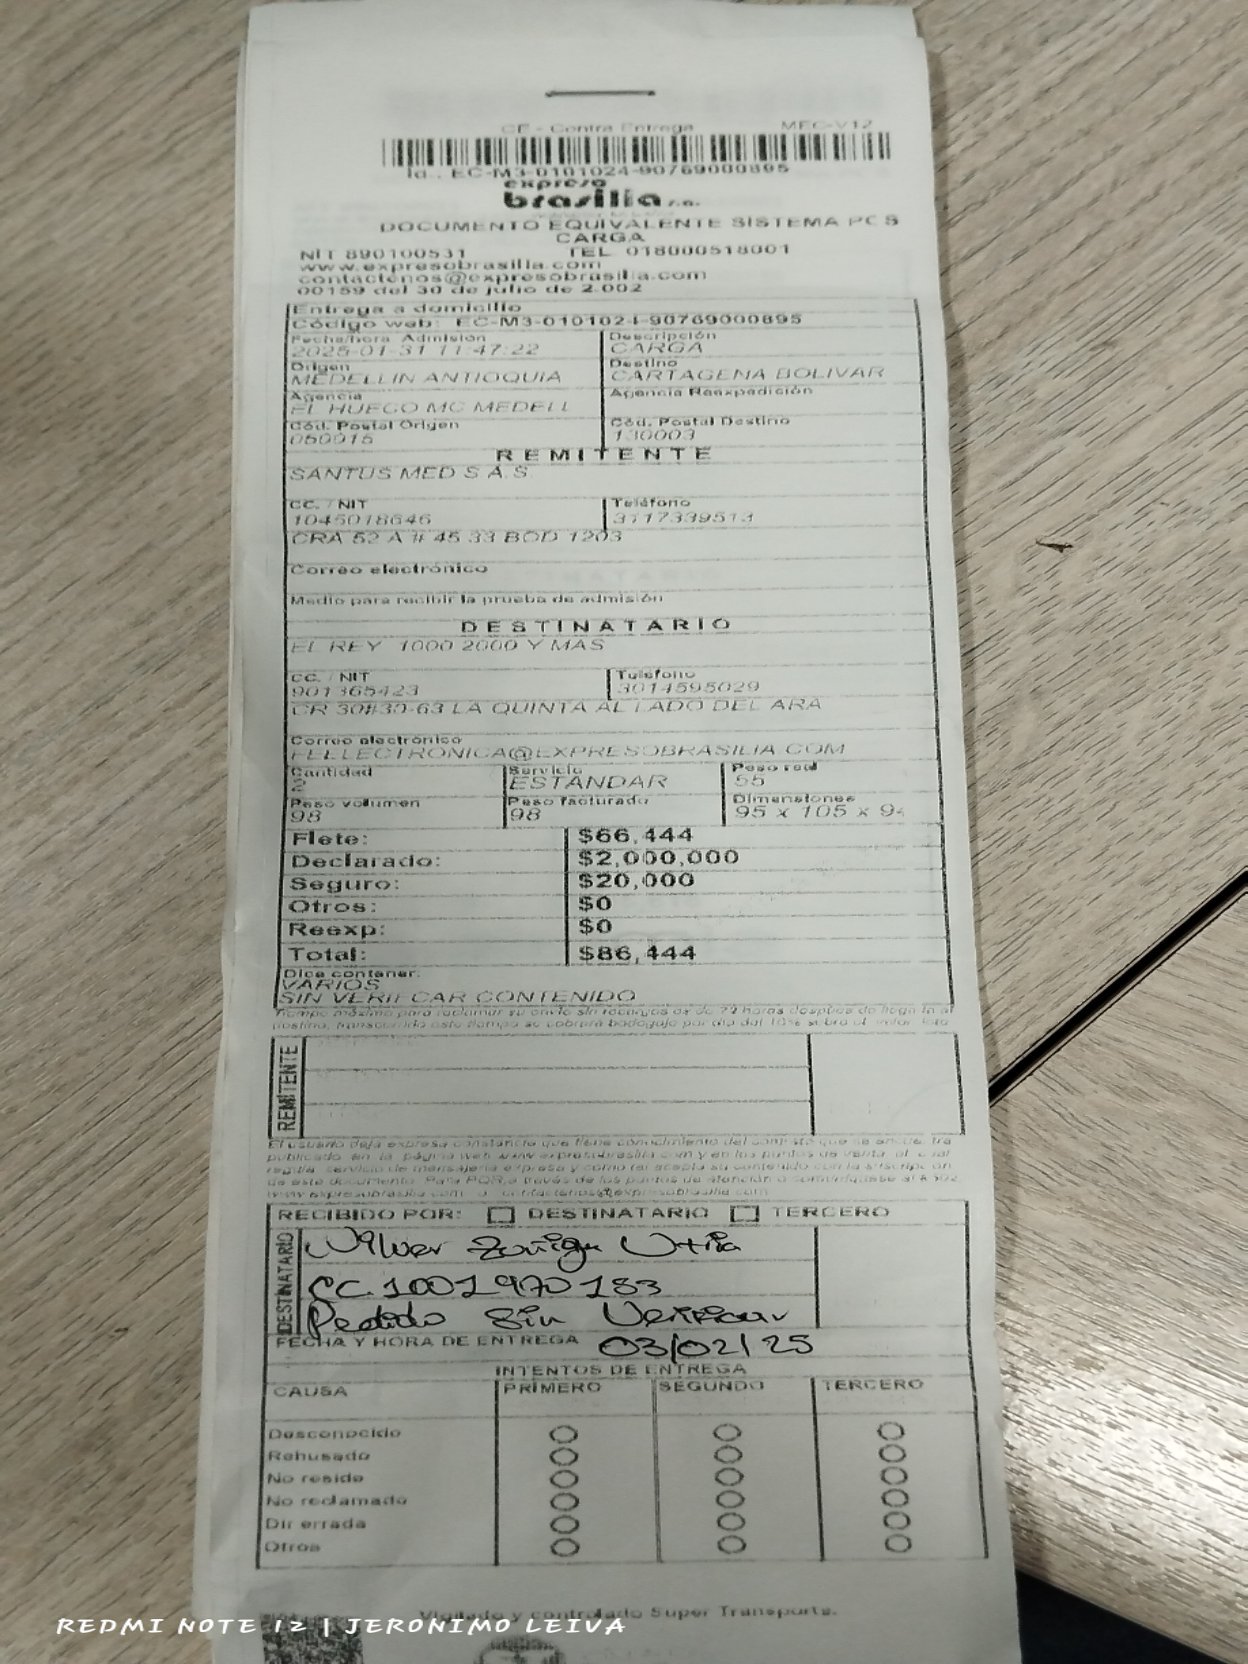 CE - Contra Entrega MEC-V12
Id.: EC-M3-0101024-90769000895
expreso
brasilia s.a.
DOCUMENTO EQUIVALENTE SISTEMA PCS
CARGA
NIT 890100531 TEL 018000518001
www.expresobrasilia.com
contactenos@expresobrasilia.com
00159 del 30 de julio de 2.002
Entrega a domicilio
Código web: EC-M3-0101024-90769000895
Fecha/hora Admisión Descripción
2025-01-31 11:47:22 CARGA
Origen Destino
MEDELLIN ANTIOQUIA CARTAGENA BOLIVAR
Agencia Agencia Reexpedición
EL HUECO MC MEDELL
Cód. Postal Origen Cód. Postal Destino
050015 130003
REMITENTE
SANTUS MED S A.S
CC. / NIT Teléfono
1045018646 3117339513
CRA 52 A # 45 33 BOD 1203
Correo electrónico
Medio para recibir la prueba de admisión
DESTINATARIO
EL REY 1000 2000 Y MAS
CC. / NIT Teléfono
901365423 3014595029
CR 30#30-63 LA QUINTA AL LADO DEL ARA
Correo electrónico
FELECTRONICA@EXPRESOBRASILIA.COM
Cantidad Servicio Peso real
2 ESTANDAR 55
Peso volumen Peso facturado Dimensiones
98 98 95 x 105 x 94
Flete: $66,444
Declarado: $2,000,000
Seguro: $20,000
Otros: $0
Reexp: $0
Total: $86,444
Dice contener:
VARIOS
SIN VERIFICAR CONTENIDO
Tiempo máximo para reclamar su envío sin recargos es de 72 horas después de llegada al
destino, transcurrido este tiempo se cobrará bodegaje por día del 10% sobre el valor
REMITENTE
El usuario deja expresa constancia que tiene conocimiento del contrato que se encuentra
publicado en la página web www.expresobrasilia.com y en los puntos de venta, el cual
regula servicio de mensajería expresa y como tal acepta su contenido con la suscripción
de este documento. Para PQR a través de los puntos de atención o comuníquese al
www.expresobrasilia.com o contactenos@expresobrasilia.com
RECIBIDO POR: DESTINATARIO TERCERO
DESTINATARIO
Wilver Zuñiga Utria
CC. 1001970183
Pedido Sin Verificar
FECHA Y HORA DE ENTREGA 03/02/25
INTENTOS DE ENTREGA
CAUSA PRIMERO SEGUNDO TERCERO
Desconocido
Rehusado
No reside
No reclamado
Dir errada
Otros
Vigilado y controlado Super Transporte.
REDMI NOTE 12 | JERONIMO LEIVA